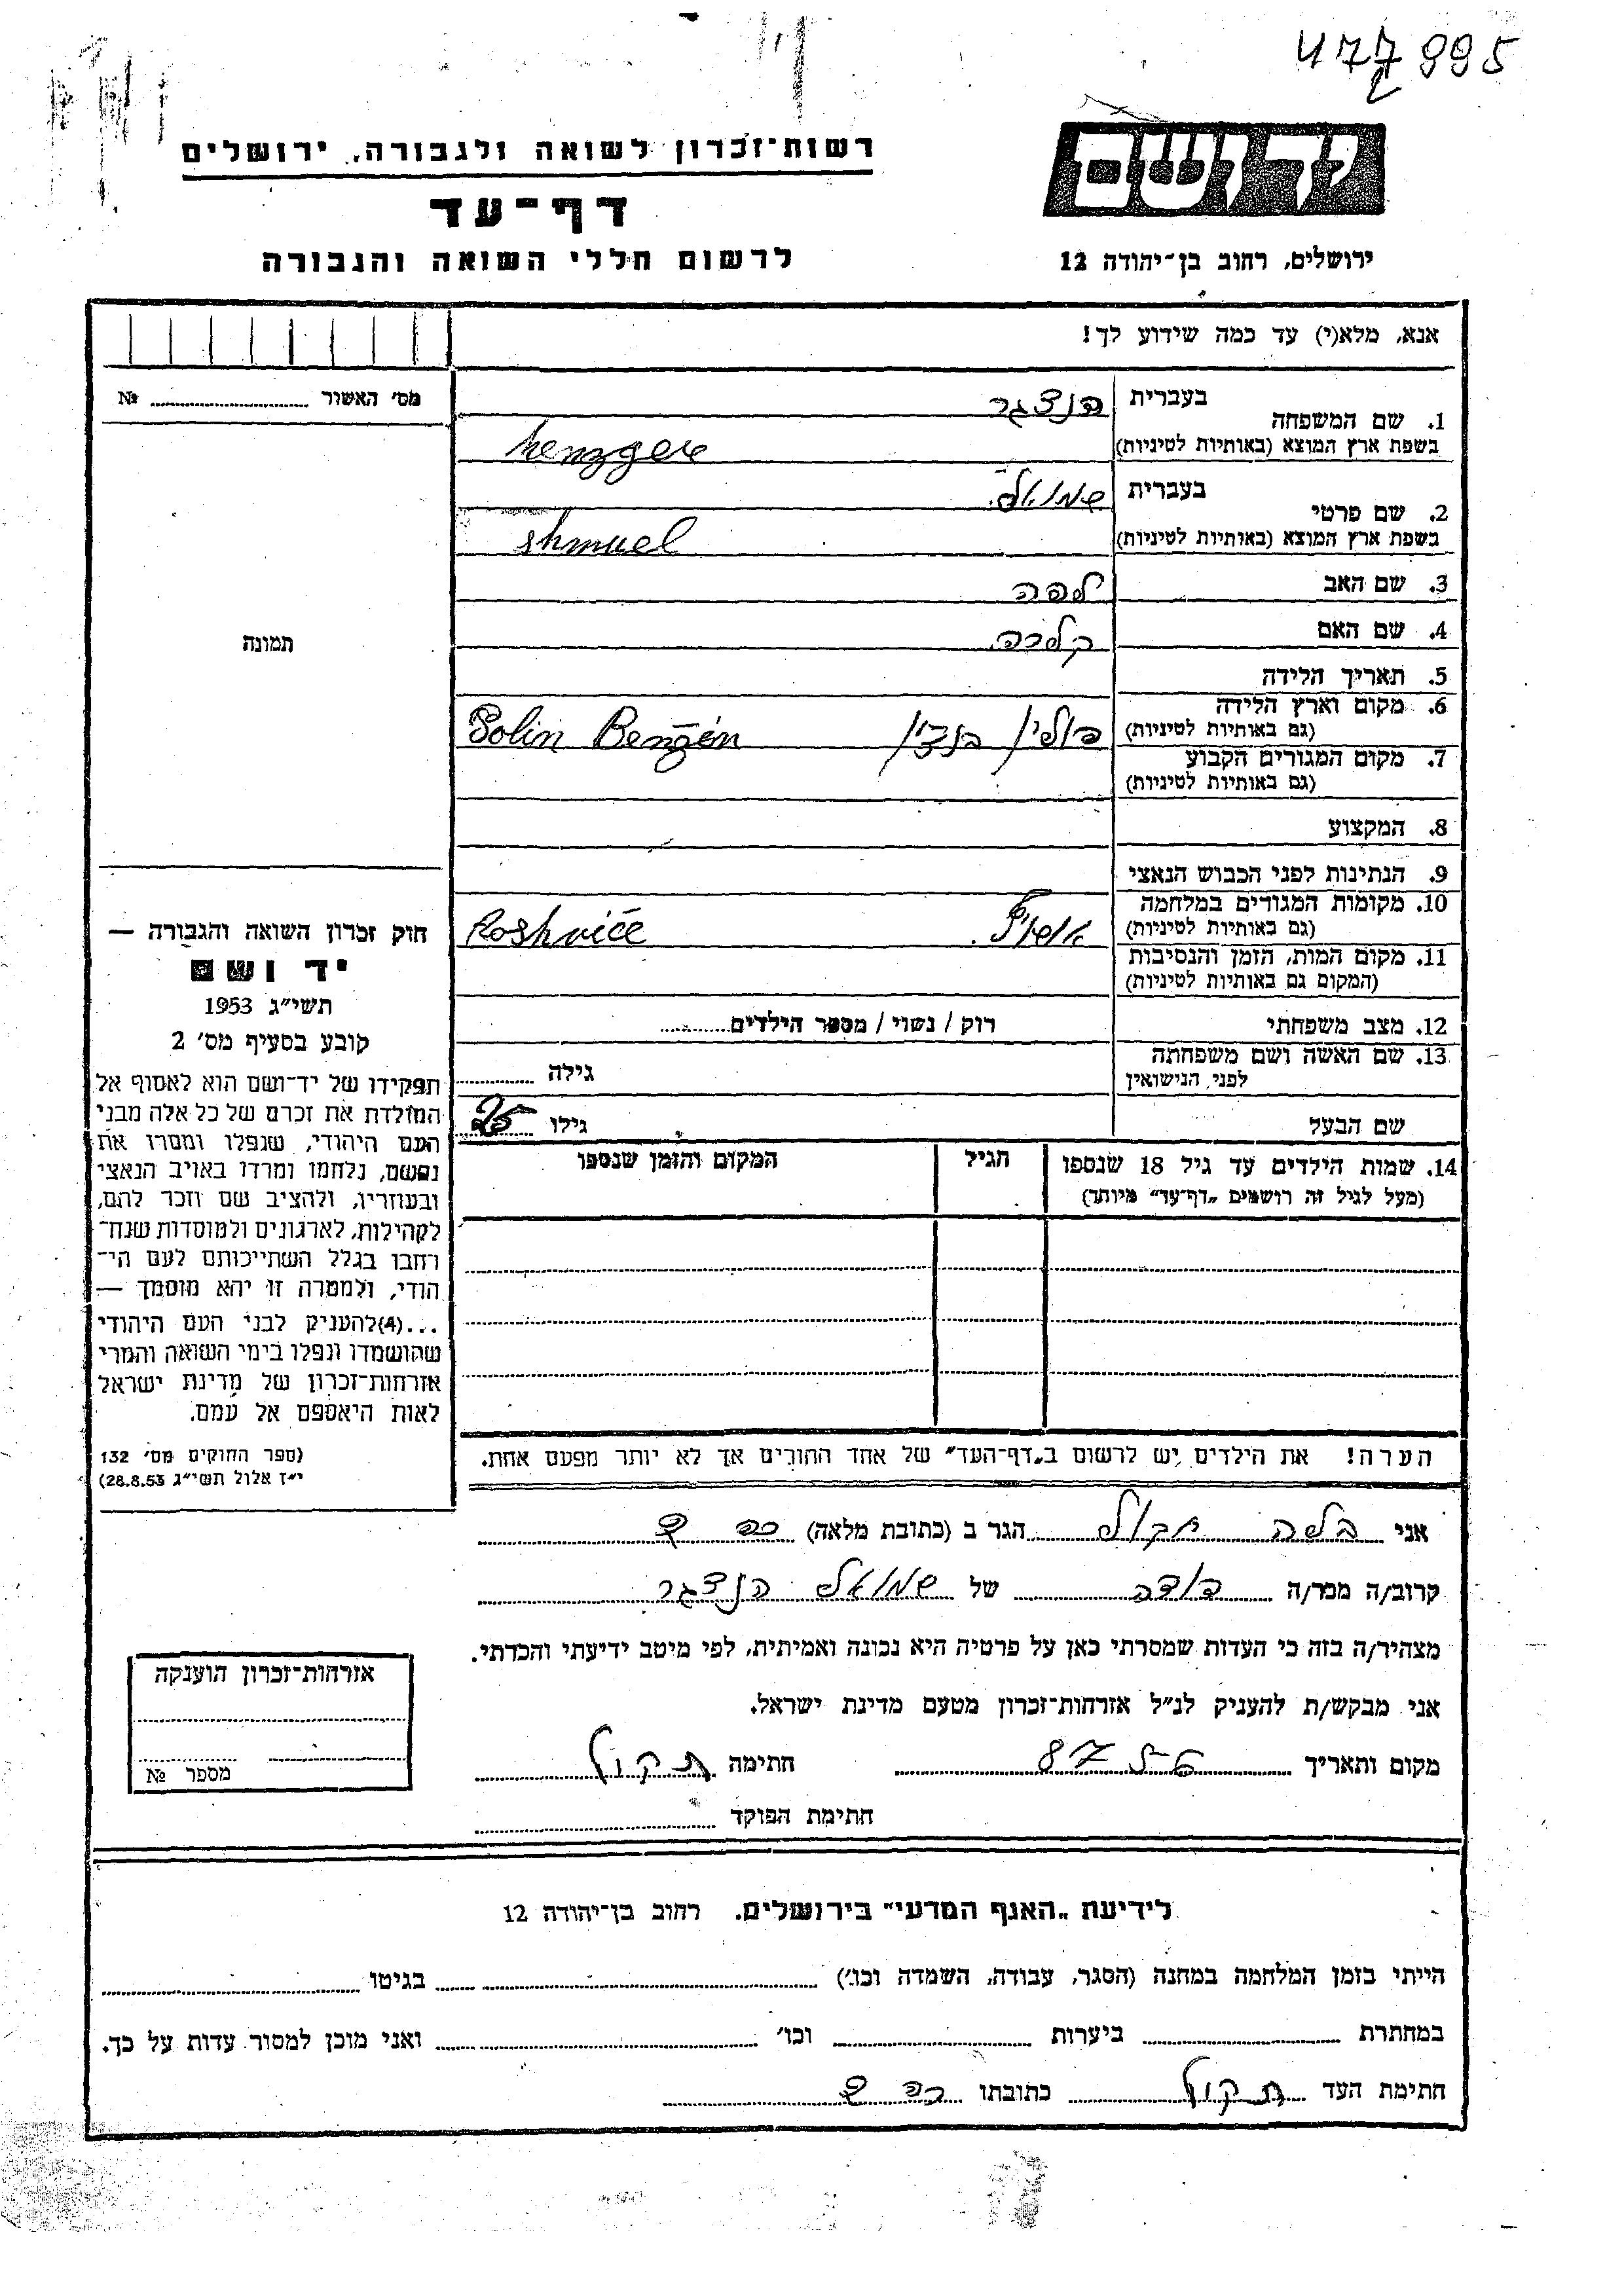 477995
רשות־זכרון לשואה ולגבורה, ירושלים
יד ושם
דף־עד
לרשום חללי השואה והגבורה
ירושלים, רחוב בן־יהודה 12
אנא, מלא(י) עד כמה שידוע לך!
מס׳ האשור № 
1. שם המשפחה
בעברית הנצגר
בשפת ארץ המוצא (באותיות לטיניות) henzgere
2. שם פרטי
בעברית שמואל
בשפת ארץ המוצא (באותיות לטיניות) shmuel
3. שם האב
4. שם האם
5. תאריך הלידה
6. מקום וארץ הלידה
(גם באותיות לטיניות) פולין בנדין Polin Benzén
7. מקום המגורים הקבוע
(גם באותיות לטיניות)
8. המקצוע
9. הנתינות לפני הכבוש הנאצי
10. מקומות המגורים במלחמה
(גם באותיות לטיניות) Roshviće
11. מקום המות, הזמן והנסיבות
(המקום גם באותיות לטיניות)
12. מצב משפחתי רוק / נשוי / מספר הילדים
13. שם האשה ושם משפחתה
לפני הנישואין גילה
שם הבעל גילו 25
14. שמות הילדים עד גיל 18 שנספו הגיל המקום והזמן שנספו
(מעל לגיל זה רושמים „דף־עד״ מיוחד)
הערה! את הילדים יש לרשום ב„דף־העד״ של אחד ההורים אך לא יותר מפעם אחת.
תמונה
חוק זכרון השואה והגבורה —
יד ושם
תשי״ג 1953
קובע בסעיף מס׳ 2
תפקידו של יד־ושם הוא לאסוף אל
המולדת את זכרם של כל אלה מבני
העם היהודי, שנפלו ומסרו את
נפשם, נלחמו ומרדו באויב הנאצי
ובעוזריו, ולהציב שם וזכר להם,
לקהילות, לארגונים ולמוסדות שנח־
רחבו בגלל השתייכותם לעם הי־
הודי, ולמטרה זו יהא מוסמך —
...(4)להעניק לבני העם היהודי
שהושמדו ונפלו בימי השואה והמרי
אזרחות־זכרון של מדינת ישראל
לאות היאספם אל עמם.
(ספר החוקים מס׳ 132
י״ז אלול תשי״ג 28.8.53)
אני הגר ב (כתובת מלאה)
קרוב/ה מכר/ה דודה של שמואל הנצגר
מצהיר/ה בזה כי העדות שמסרתי כאן על פרטיה היא נכונה ואמיתית, לפי מיטב ידיעתי והכרתי.
אני מבקש/ת להעניק לנ״ל אזרחות־זכרון מטעם מדינת ישראל.
מקום ותאריך חתימה
חתימת הפוקד
אזרחות־זכרון הוענקה
מספר №
לידיעת „האגף המדעי״ בירושלים. רחוב בן־יהודה 12
הייתי בזמן המלחמה במחנה (הסגר, עבודה, השמדה וכו׳) בגיטו
במחתרת ביערות וכו׳ ואני מוכן למסור עדות על כך.
חתימת העד כתובתו